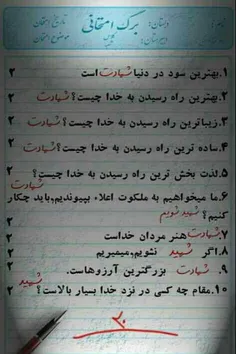 نام:
دبستان:
برگ امتحانی
تاریخ امتحان
دبیرستان:
کلاس
موضوع امتحان
۱.بهترین سود در دنیا شهادت است ۲
۲.بهترین راه رسیدن به خدا چیست؟ شهادت ۲
۳.زیباترین راه رسیدن به خدا چیست؟ شهادت ۲
۴.ساده ترین راه رسیدن به خدا چیست؟ شهادت ۲
۵.لذت بخش ترین راه رسیدن به خدا چیست؟ ۲
شهادت
۶.ما میخواهیم به ملکوت اعلاء بپیوندیم،باید چکار
کنیم؟ شهید شویم ۲
۷.شهادت هنر مردان خداست ۲
۸.اگر شهید نشویم،میمیریم ۲
۹. شهادت بزرگترین آرزوهاست. ۲
شهید
۱۰.مقام چه کسی در نزد خدا بسیار بالاست؟ ۲
۲۰